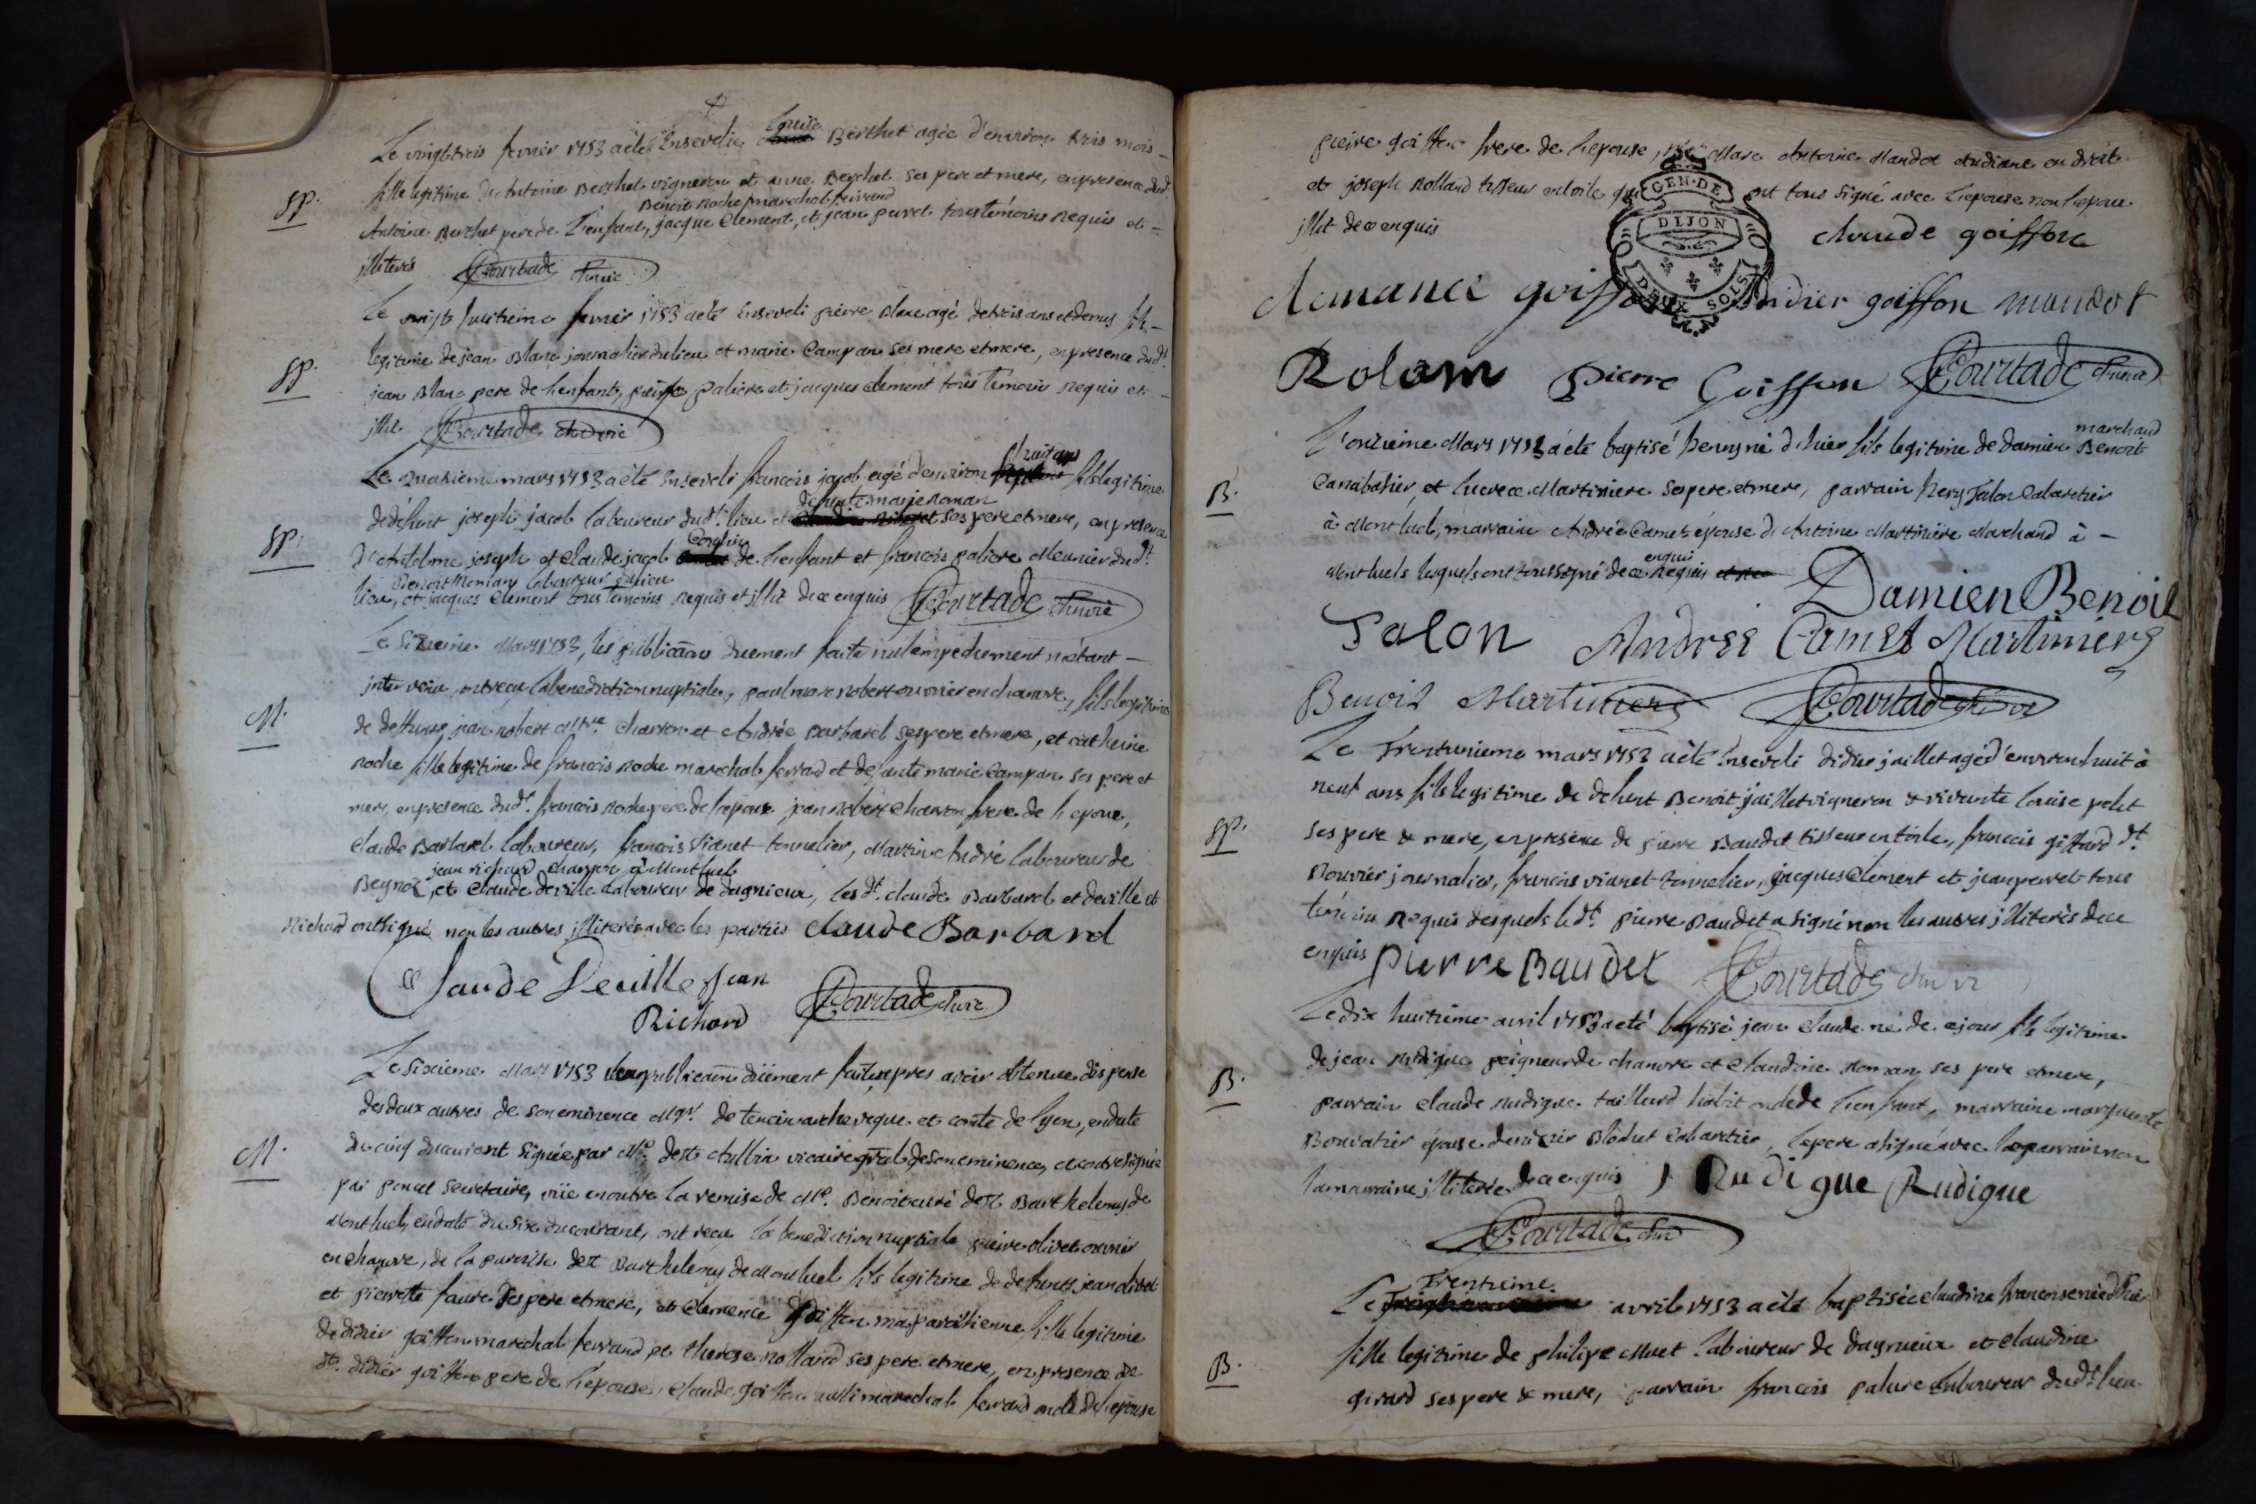 Le vingt trois fevrier 1753 a eté Ensevelie Louise Berthet agée d'environ trois mois
Sp.
fille legitime de Antoine Berthet vigneron et anne Berthet ses pere et mere, en presence dud.
Benoit Roche marechal ferrand
Antoine Berthet pere de l'enfant, jacque Clement, et jean perret tous témoins requis et
illiterés Courtade Curé
Le vingt huitieme fevrier 1753 a eté Enseveli pierre Blanc agé de trois ans et demy fils
Sp.
legitime de jean Blanc journalier du lieu et marie Campan ses mere et mere, en presence dudt
jean Blanc pere de l'enfant, paliere et jacques clement tous temoins requis et
illit. Courtade Curé
Le quatrieme mars 1753 a eté Enseveli francois jacob agé d'environ huit ans fils legitime
defunte marie roman
de défunt joseph jacob laboureur dudt. lieu et ses pere et mere, en presence
Sp.
d'Antelme joseph et Claude jacob cousin de l'enfant et francois paliere Meunier dudt
Benoit laboureur
lieu, et jacques Clement tous temoins requis et illit. de ce enquis Courtade Curé
Le Sixieme Mars 1753, les publications duement faites nul empechement n'etant
M.
intervenu, ont reçu la benediction nuptiale, paul marc robert ouvrier en chanvre, fils legitime
de deffunt jean robert Mtre. Charron et Andrée Barbarel ses pere et mere, et catherine
roche fille legitime de francois roche marechal ferrand et defunte marie Campan ses pere et
mere, en presence dudt. francois roche pere de l'epouse jean robert Charron frere de l'epoux,
Claude Barbarel laboureur, francois Vianet tonnelier, Martin André laboureur de
jean richard charron à Montluel
Beynoz, et Claude deville laboureur de dagnieux, les dt. claude Barbarel et deville et
Richard ont signé non les autres illiterés avec les parties Claude Barbarel
Claude Deville Jean
Richard Courtade Curé
Le Sixieme Mars 1753 une publication düement faite, apres avoir obtenue dispense
des deux autres de son eminence Mgr. de tencin archeveque et comte de lyon, en date
M.
du cinq du courant signée par Mr. de St. Aubin vicaire gnral de son eminence, et contresignée
par poncet secretaire, vüe en outre la remise de Mr. Benoit curé de St. Barthelemy de
Montluel, en date du six du courant, ont reçu la benediction nuptiale pierre olivet ouvrier
en chanvre, de la paroisse de St Barthelemy de Montluel fils legitime de defunts jean olivet
et pierrette faure ses pere et mere, et Clemence Goiffon ma paroissienne fille legitime
de didier goiffon marechal ferrand et therese rolland ses pere et mere, en presence de
dt. didier goiffon pere de l'epouse, Claude Goiffon aussi marechal ferrand oncle de l'epouse
pierre goiffon frere de l'epouse, Marc Antoine Mandot etudiant en droit
et joseph rolland tisseur en toile qui ont tous signé avec l'epouse non l'epoux
illit. de ce enquis claude goiffon
GEN. DE
DIJON
DEUX SOLS
clemance goiffon didier goiffon mandot
Rolam pierre Goiffon Courtade Curé
L'onzieme Mars 1753 a eté baptisé henry né d'hier fils legitime de damien Benoit marchand
B.
Canabasier et lucrece Martiniere ses pere et mere, parrain hery Talon Cabaretier
à Montluel, marraine Andrée Camet épouse d'Antoine Martiniere Marchand à
Montluel, lesquels ont tous signé de ce enqui
Damien Benoit
Talon Andree Camet Martiniere
Benoit Martiniere Courtade Curé
Le Trentunieme mars 1753 a eté Enseveli didier jaillet agé d'environ huit à
neuf ans fils legitime de defunt Benoit jaillet vigneron et vivante louise pelet
Sp.
ses pere & mere, en presence de pierre Baudet tisseur en toile, francois giffard dt.
Bouvier journalier, francois vianet tonnelier, jacques Clement et jean perret tous
temoins requis desquels ledt. pierre Baudet a signé non les autres illiterés de ce
enquis Pierre Baudet Courtade Curé
Le dix huitieme avril 1753 a eté baptisé jean Claude né de ce jour fils legitime
de jean rudigue peigneur de chanvre et Claudine Roman ses pere et mere,
B.
parrain claude rudigue tailleur d'habit oncle de l'enfant, marraine marguerite
Bouvatier épouse de Blochet Cabaretier, le pere a signé avec le parrain non
la marraine illiterée de ce enquis J Rudigue Rudigue
Courtade Curé
Trentieme
Le avril 1753 a eté baptisée claudine francoise née d'hier
B.
fille legitime de philipe Muet laboureur de dagnieux et Claudine
girard ses pere & mere, parrain francois paliere laboureur dudt lieu